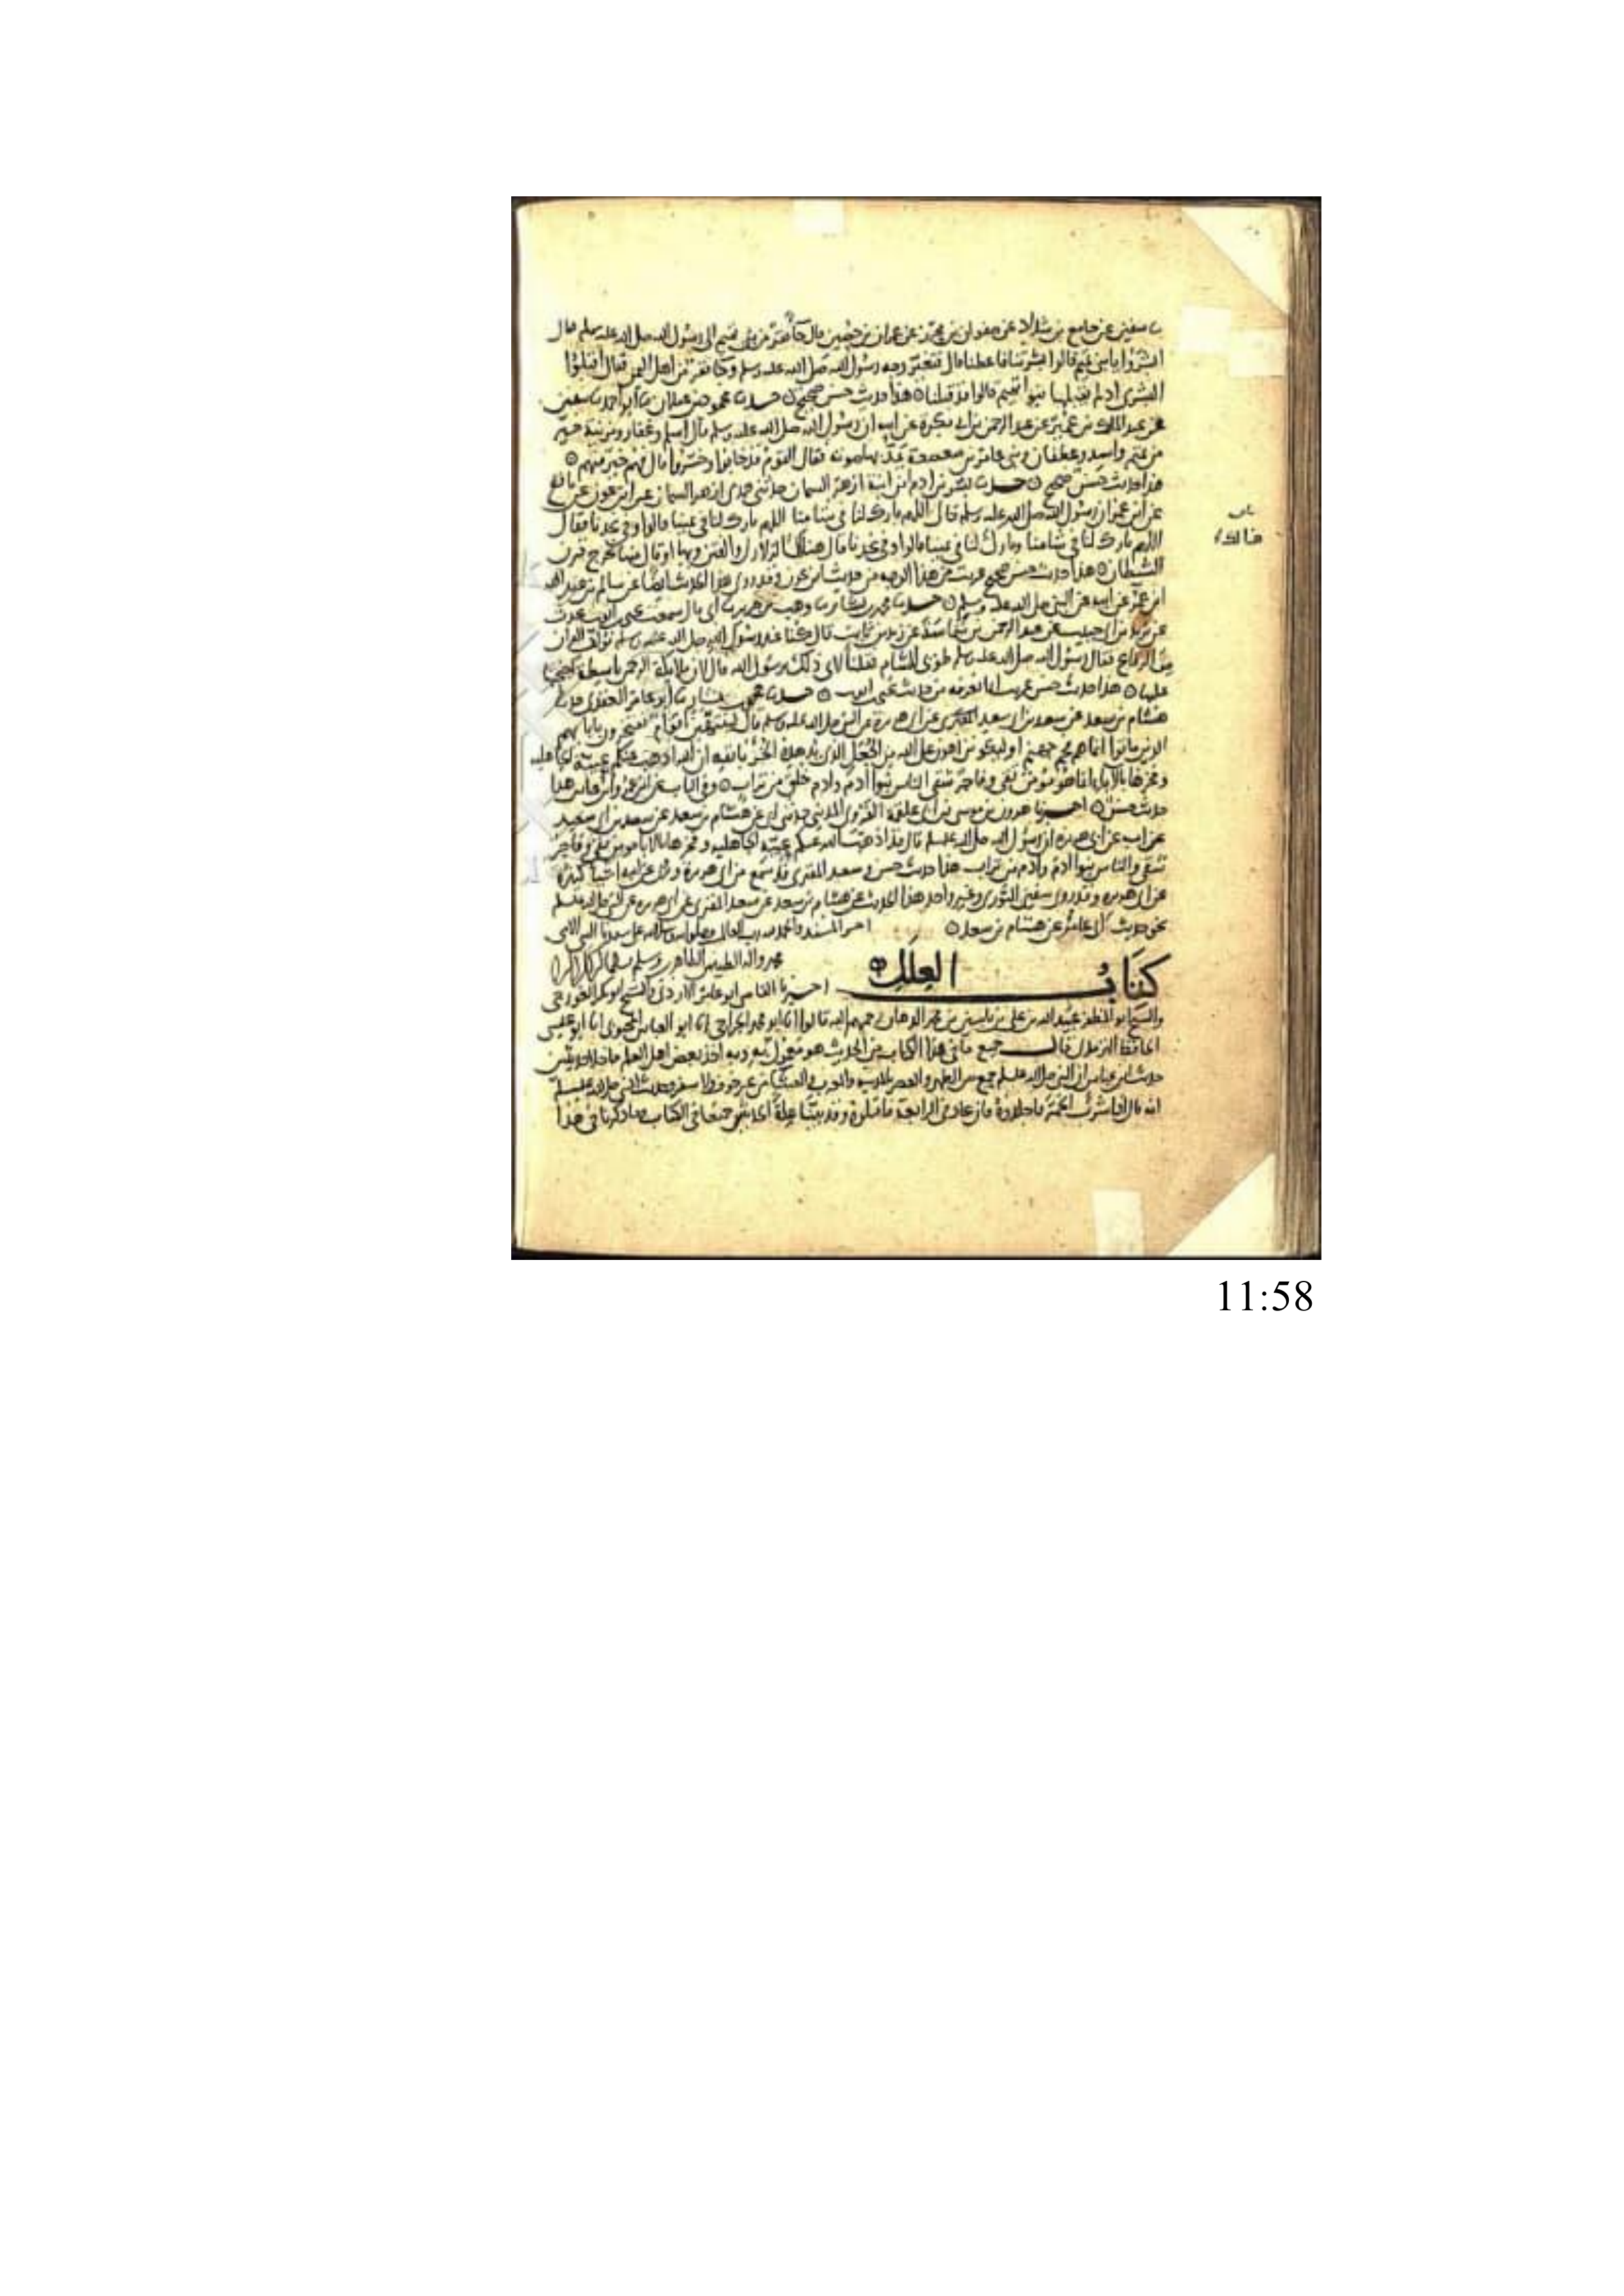 سفين عن جامع بن شداد عن صفوان بن محرز عن عمران بن حصين قال جا نفر من بني تميم الى رسول الله صلى الله عليه وسلم فقال
ابشروا يا بني تميم قالوا بشرتنا فاعطنا قال فتغير وجه رسول الله صلى الله عليه وسلم وجا نفر من اهل اليمن فقال اقبلوا
البشرى اذ لم يقبلها بنوا تميم قالوا قد قبلنا هذا حديث حسن صحيح حدثنا محمود بن غيلان ابو احمد سفين
عن عبد الملك بن عمير عن عبد الرحمن بن ابي بكرة عن ابيه ان رسول الله صلى الله عليه وسلم قال اسلم وغفار ومزينة خير
من تميم واسد وغطفان وبني عامر بن صعصعة يمد بها صوته فقال القوم قد خابوا وخسروا قال فهم خير منهم
هذا حديث حسن صحيح حدثنا بشر بن ادم ابن ابنة ازهر السمان حدثني جدي ازهر السمان عن ابن عون عن نافع
عن ابن عمر ان رسول الله صلى الله عليه وسلم قال اللهم بارك لنا في شامنا اللهم بارك لنا في يمننا قالوا وفي نجدنا فقال
اللهم بارك لنا في شامنا وبارك لنا في يمننا قالوا وفي نجدنا قال هناك الزلازل والفتن وبها او قال منها يخرج قرن
الشيطان هذا حديث حسن صحيح غريب من هذا الوجه من حديث ابن عون وقد روي هذا الحديث ايضا عن سالم بن عبد الله
ابن عمر عن ابيه عن النبي صلى الله عليه وسلم حدثنا محمد بن بشار وهب بن جرير ابي قال سمعت يحيى بن ايوب يحدث
عن يزيد بن ابي حبيب عن عبد الرحمن بن شماسة عن زيد بن ثابت قال كنا عند رسول الله صلى الله عليه وسلم نؤلف القران
من الرقاع فقال رسول الله صلى الله عليه وسلم طوبى للشام فقلنا لاي ذلك يرسول الله قال لان ملايكة الرحمن باسطة اجنحتها
عليها هذا حديث حسن غريب انما نعرفه من حديث يحيى بن ايوب حدثنا محمد بن بشار ابو عامر العقدي
هشام بن سعد عن سعيد بن ابي سعيد المقبري عن ابي هريرة عن النبي صلى الله عليه وسلم قال لينتهين اقوام يفتخرون بابايهم
الذين ماتوا انما هم فحم جهنم او ليكونن اهون على الله من الجعل الذي يدهده الخرء بانفه ان الله اذهب عنكم عبية الجاهلية
وفخرها بالاباء انما هو مؤمن تقي وفاجر شقي الناس بنوا ادم وادم خلق من تراب وفي الباب عن ابن عمر وابن عباس هذا
حديث حسن اخبرنا هرون بن موسى بن ابي علقمة الفروي المديني حدثني ابي عن هشام بن سعد عن سعيد بن ابي سعيد
عن ابيه عن ابي هريرة ان رسول الله صلى الله عليه وسلم قال قد اذهب الله عنكم عبية الجاهلية وفخرها بالابا مومن تقي وفاجر
شقي والناس بنوا ادم وادم من تراب هذا حديث حسن وسعيد المقبري قد سمع من ابي هريرة وروى عن ابيه اشيا كثيرة
عن ابي هريرة وقد روى سفين الثوري وغير واحد هذا الحديث عن هشام بن سعد عن سعيد المقبري عن ابي هريرة عن النبي صلى الله عليه وسلم
نحو حديث ابي عامر عن هشام بن سعد اخر المسند والحمد لله رب العالمين وصلواته وسلامه على سيدنا النبي الامي
محمد واله الطيبين الطاهرين وسلم
كتاب العلل
اخبرنا القاضي ابو عامر الازدي والشيخ ابو بكر الغورجي
والشيخ ابو المظفر عبيد الله بن علي بن ياسين بن محمد الدهان رحمهم الله قالوا ابو محمد الجراحي ابو العباس المحبوبي ابو عيسى
الحافظ الترمذي قال جميع ما في هذا الكتاب من الحديث هو معمول به وبه اخذ بعض اهل العلم ما خلا حديثين
حديث ابن عباس ان النبي صلى الله عليه وسلم جمع بين الظهر والعصر بالمدينة والمغرب والعشا من غير خوف ولا سفر وحديث النبي صلى الله عليه وسلم
انه قال اذا شرب الخمر فاجلدوه فان عاد في الرابعة فاقتلوه وقد بينا علة الحديثين جميعا في الكتاب وما ذكرنا في هذا
11:58